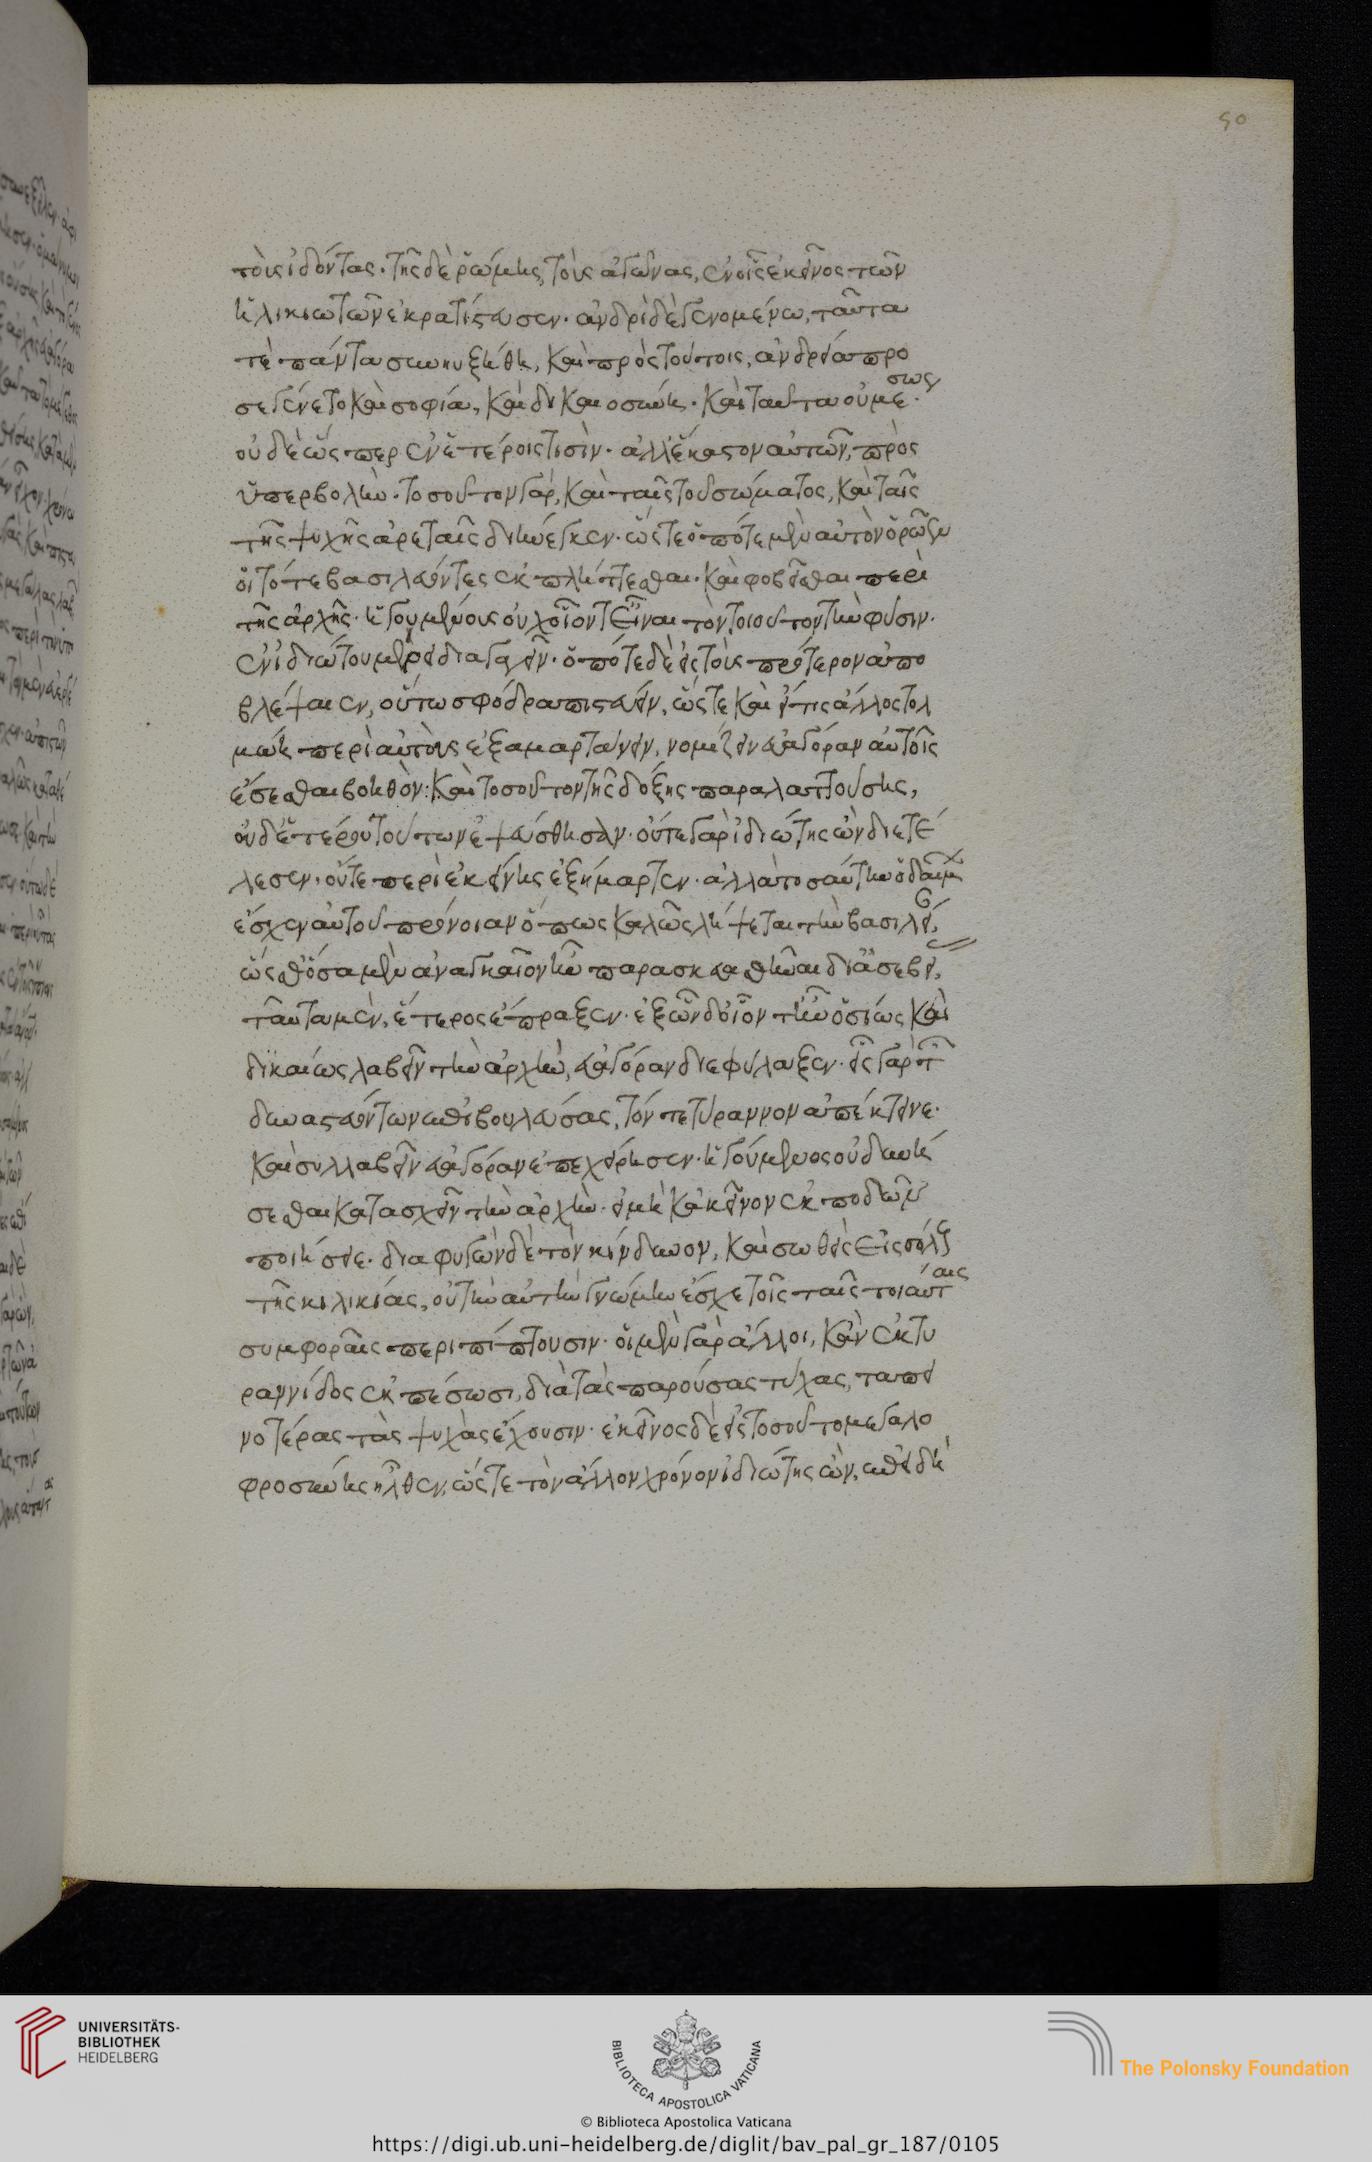 50
τοὺς ἰδόντας· τῆς δὲ ῥώμης, τοὺς ἀγῶνας, ἐν οἷς ἐκεῖνος τῶν
ἡλικιωτῶν ἐκρατίστευσεν· ἀνδρὶ δὲ γενομένω, ταῦτα
τὲ πάντα συνηυξήθη, καὶ πρὸς τούτοις, ἀνδρεία προ
σεγένετο καὶ σοφία, καὶ δικαιοσύνη· καὶ ταῦτα οὐ μέσως
οὐδὲ ὥσπερ ἐν ἑτέροις τισὶν· ἀλλ' ἕκαστον αὐτῶν, πρὸς
ὑπερβολὴν· τοσοῦτον γὰρ, καὶ ταῖς τοῦ σώματος, καὶ ταῖς
τῆς ψυχῆς ἀρεταῖς διήνεγκεν· ὥστε ὁπότε μὲν αὐτὸν ὁρῶεν
οἱ τότε βασιλεύοντες ἐκπλήττεσθαι· καὶ φοβεῖσθαι περὶ
τῆς ἀρχῆς· ἡγουμένους οὐχ οἷόν τ' εἶναι τὸν τοιοῦτον τὴν φύσιν·
ἐν ἰδιώτου μέρει διαγαγεῖν· ὁπότε δὲ εἰς τοὺς τρόπους ἀπο
βλέψαιεν, οὕτω σφόδρα πιστεύειν, ὥστε καὶ εἴτις ἄλλος τολ
μώη περὶ αὐτοὺς ἐξαμαρτάνειν, νομίζειν εὐαγόραν αὐτοῖς
ἔσεσθαι βοηθὸν: καὶ τοσοῦτον τῆς δόξης παραλαττούσης,
οὐδετέρου τούτων ἐψεύσθησαν· οὔτε γὰρ ἰδιώτης ὢν διετέ
λεσεν· οὔτε περὶ ἐκείνης ἐξήμαρτεν· ἀλλὰ τοσαύτην ὁ δαίμων
ἔσχεν αὐτοῦ πρόνοιαν ὅπως καλῶς λήψεται τὴν βασιλείαν,
ὥσθ' ὅσα μὲν ἀναγκαῖον ἦν παρασκευασθῆναι δι' ἀσεβείας,
ταῦτα μὲν, ἕτερος ἔπραξεν· ἐξ ὧν δ' οἷόν τ' ἦν ὁσίως καὶ
δικαίως λαβεῖν τὴν ἀρχὴν, εὐαγόραν διεφύλαξεν· εἷς γὰρ τῶν
δυναστευόντων ἐπιβουλεύσας, τόν τε τύραννον ἀπέκτεινε·
καὶ συλλαβεῖν εὐαγόραν ἐπεχείρησεν· ἡγούμενος οὐ δυνή
σεσθαι κατασχεῖν τὴν ἀρχὴν· εἰ μὴ κἀκεῖνον ἐκποδὼν
ποιήσειε· διαφυγὼν δὲ τὸν κίνδυνον, καὶ σωθεὶς εἰς σόλους
τῆς κιλικίας, οὐ τὴν αὐτὴν γνώμην ἔσχε τοῖς ταῖς τοιαύταις
συμφοραῖς περιπίπτουσιν· οἱ μὲν γὰρ ἄλλοι, κἂν ἐκ τυ
ραννίδος ἐκπέσωσι, διὰ τὰς παρούσας τύχας, ταπει
νοτέρας τὰς ψυχὰς ἔχουσιν· ἐκεῖνος δὲ εἰς τοσοῦτο μεγαλο
φροσύνης ἦλθεν, ὥστε τὸν ἄλλον χρόνον ἰδιώτης ὢν, ἐπειδὴ
UNIVERSITÄTS-
BIBLIOTHEK
HEIDELBERG
BIBLIOTECA APOSTOLICA VATICANA
The Polonsky Foundation
© Biblioteca Apostolica Vaticana
https://digi.ub.uni-heidelberg.de/diglit/bav_pal_gr_187/0105